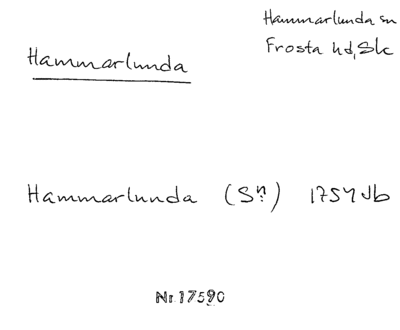 Hammarlunda sn
Frosta hd, Sk
Hammarlunda
Hammarlunda (Sn) 1757 Jb
Nr. 17590